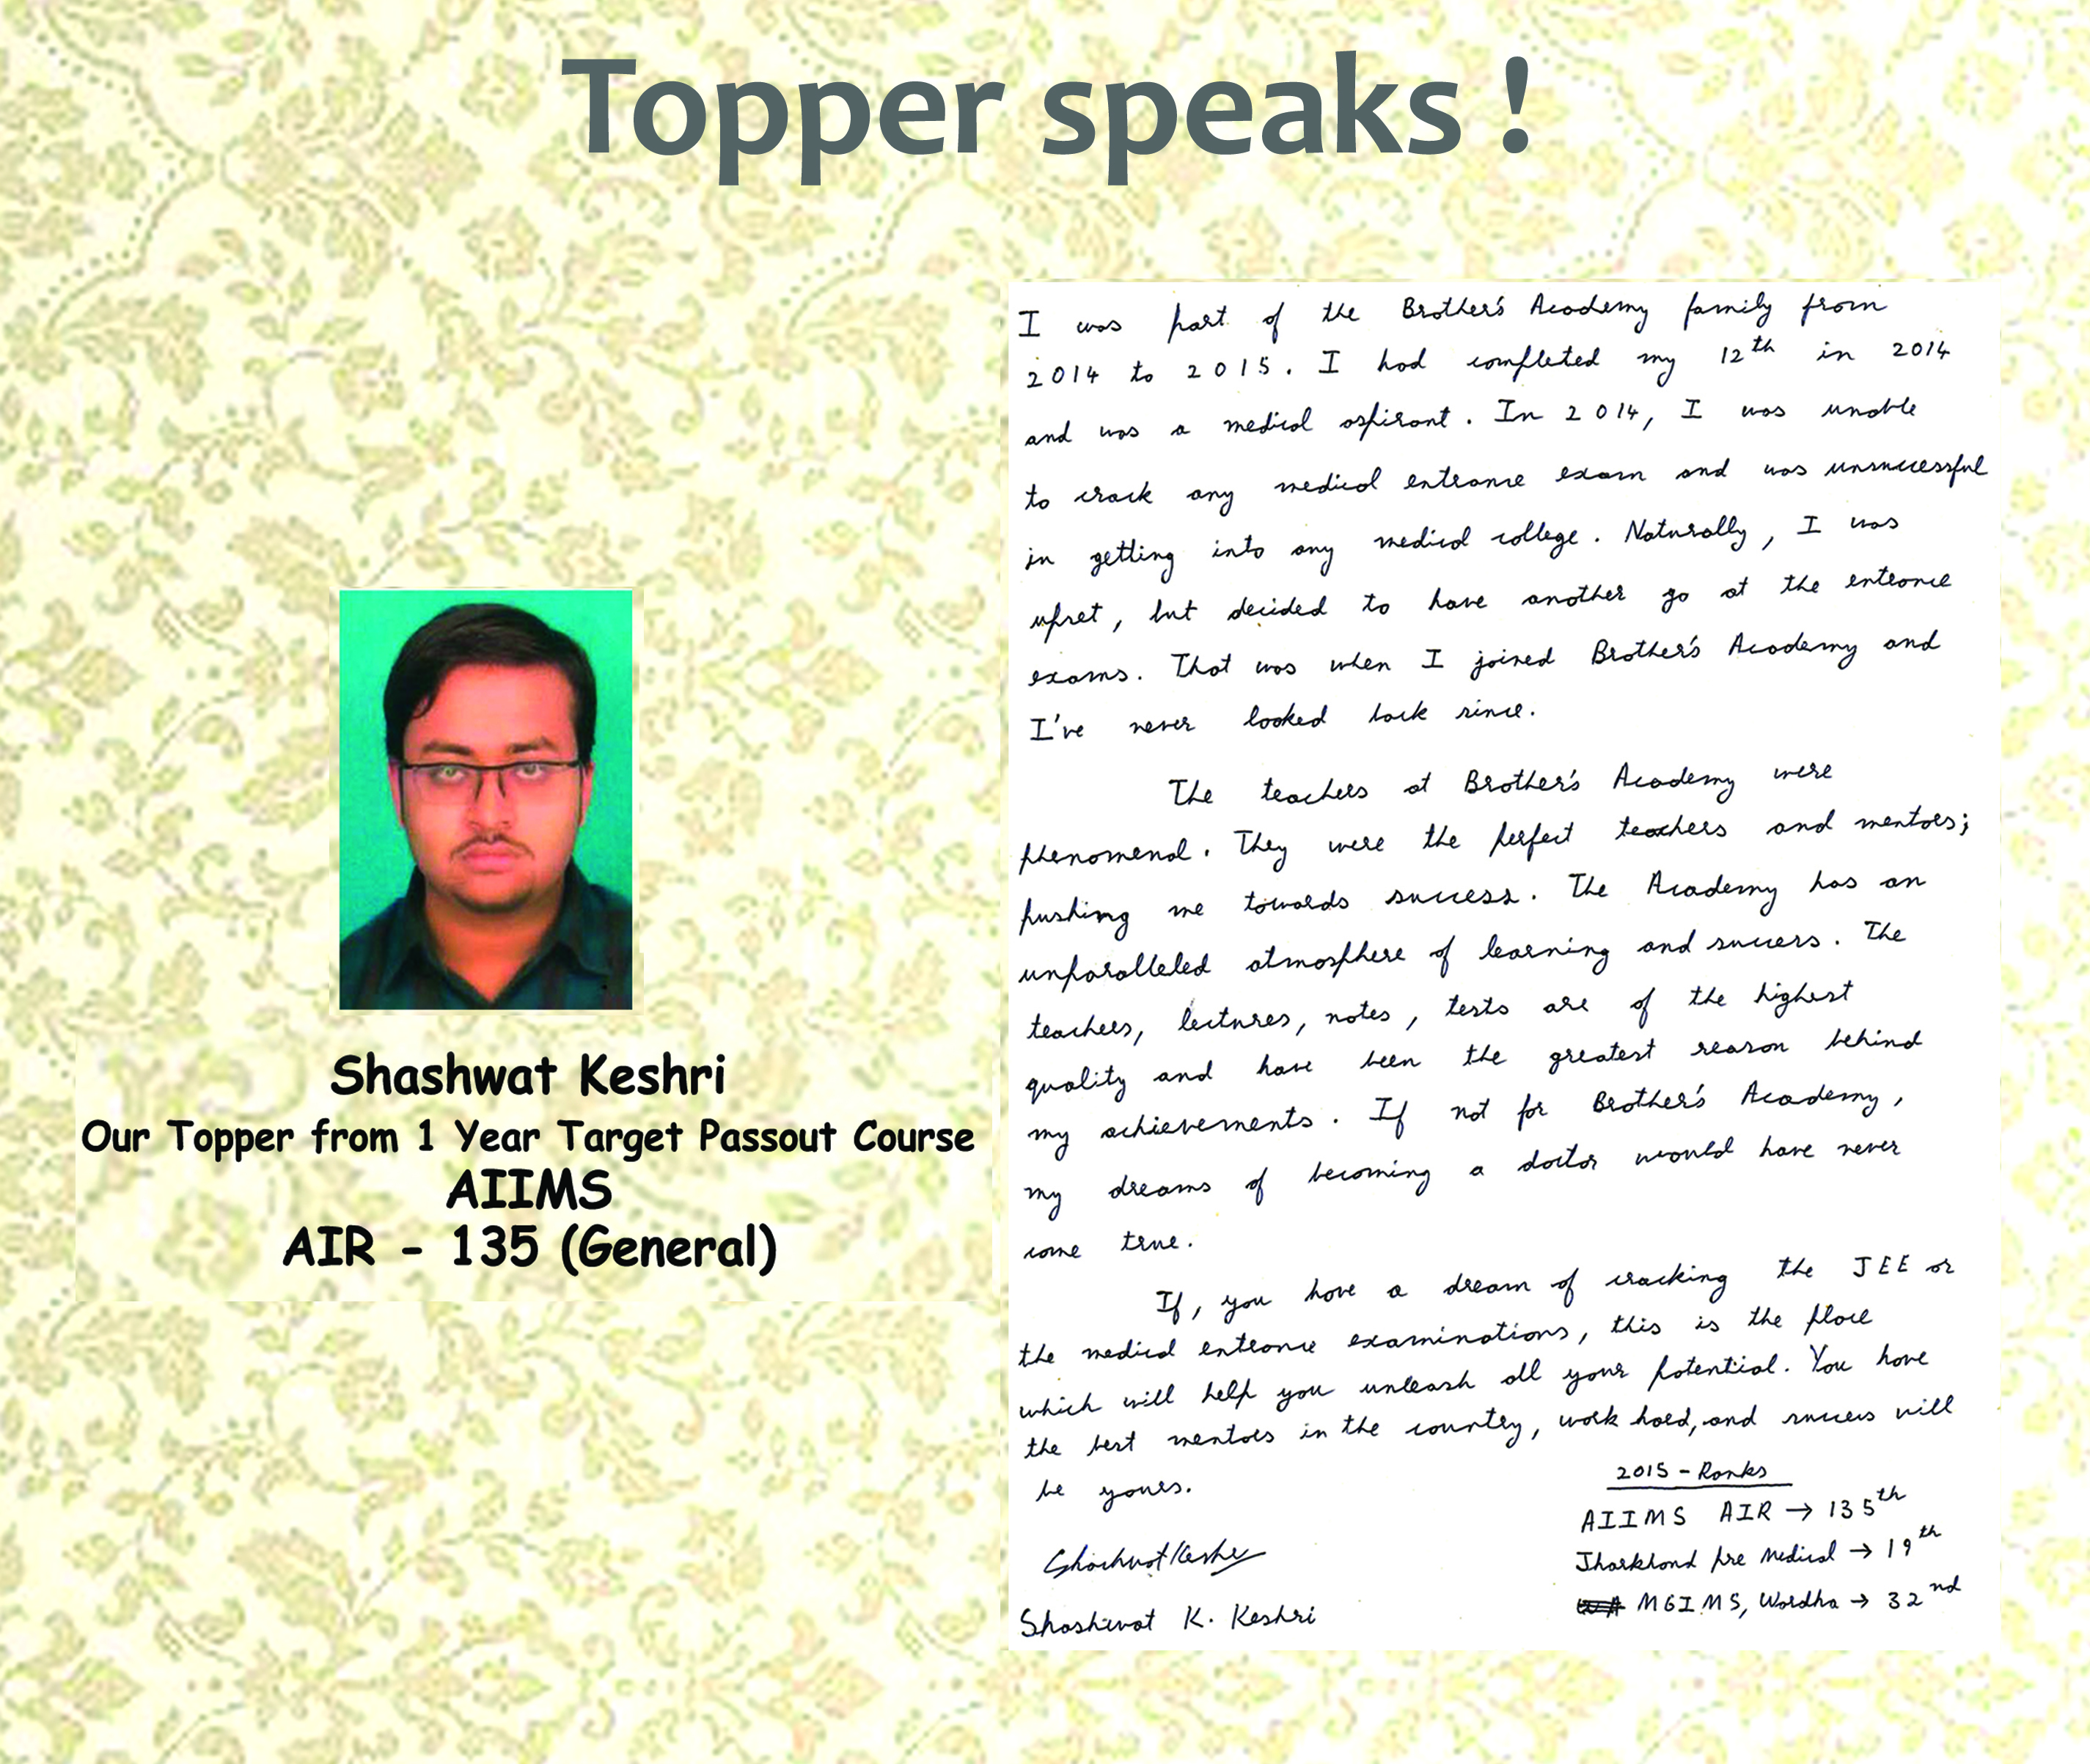 Topper speaks !
Shashwat Keshri
Our Topper from 1 Year Target Passout Course
AIIMS
AIR - 135 (General)
I was part of the Brother's Academy family from
2014 to 2015. I had completed my 12th in 2014
and was a medical aspirant. In 2014, I was unable
to crack any medical entrance exam and was unsuccessful
in getting into any medical college. Naturally, I was
upset, but decided to have another go at the entrance
exams. That was when I joined Brother's Academy and
I've never looked back since.
The teachers at Brother's Academy were
phenomenal. They were the perfect teachers and mentors;
pushing me towards success. The Academy has an
unparalleled atmosphere of learning and success. The
teachers, lectures, notes, tests are of the highest
quality and have been the greatest reason behind
my achievements. If not for Brother's Academy,
my dreams of becoming a doctor would have never
come true.
If, you have a dream of cracking the JEE or
the medical entrance examinations, this is the place
which will help you unleash all your potential. You have
the best mentors in the country, work hard, and success will
be yours.
2015 - Ranks
AIIMS AIR → 135th
Jharkhand pre Medical → 19th
MGIMS, Wardha → 32nd
Shashwat Keshri
Shashwat K. Keshri